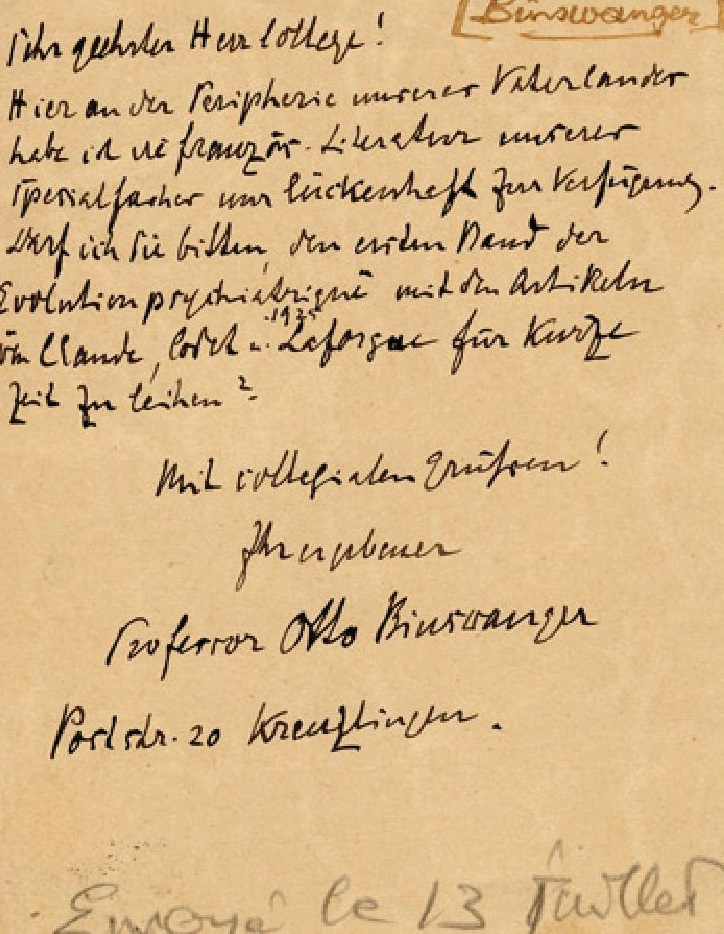 [Binswanger]
Sehr geehrter Herr College!
Hier an der Peripherie unseres Vaterlandes
habe ich die französ. Literatur unseres
Specialfaches nur lückenhaft zur Verfügung.
Darf ich Sie bitten, den ersten Band der
Evolution psychiatrique mit den Artikeln
von Claude, Codet u. Laforgue für kurze
1925
Zeit zu leihen?
Mit collegialen Grüssen!
Ihr ergebener
Professor Otto Binswanger
Poststr. 20 Kreuzlingen.
Envoyé le 13 Juillet